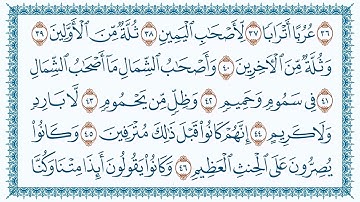 ٣٦ عُرُبًا أَتْرَابًا ٣٧ لِّأَصْحَٰبِ ٱلْيَمِينِ ٣٨ ثُلَّةٌ مِّنَ ٱلْأَوَّلِينَ ٣٩
وَثُلَّةٌ مِّنَ ٱلْـَٔاخِرِينَ ٤٠ وَأَصْحَٰبُ ٱلشِّمَالِ مَآ أَصْحَٰبُ ٱلشِّمَالِ
٤١ فِى سَمُومٍ وَحَمِيمٍ ٤٢ وَظِلٍّ مِّن يَحْمُومٍ ٤٣ لَّا بَارِدٍ
وَلَا كَرِيمٍ ٤٤ إِنَّهُمْ كَانُوا۟ قَبْلَ ذَٰلِكَ مُتْرَفِينَ ٤٥ وَكَانُوا۟
يُصِرُّونَ عَلَى ٱلْحِنثِ ٱلْعَظِيمِ ٤٦ وَكَانُوا۟ يَقُولُونَ أَئِذَا مِتْنَا وَكُنَّا